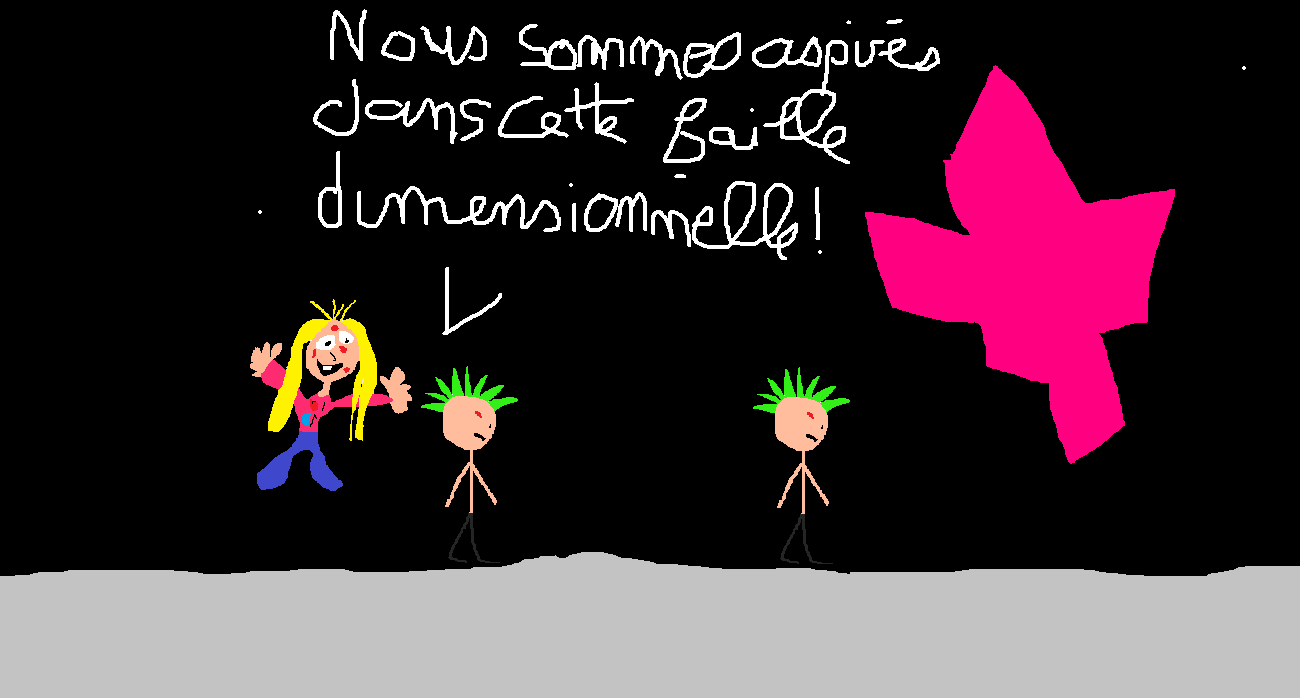 Nous sommes aspirés
dans cette faille
dimensionnelle!